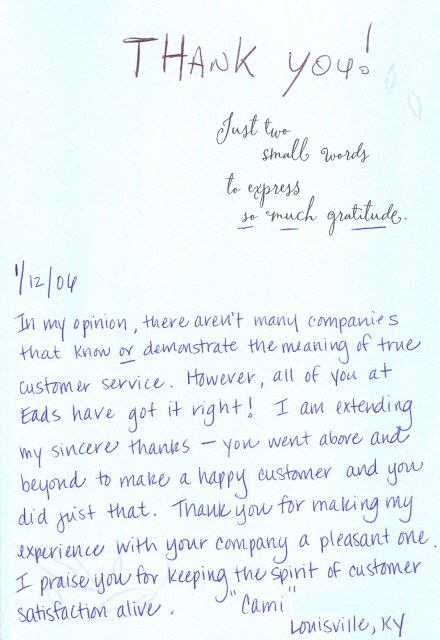 THANK YOU!
Just two
small words
to express
so much gratitude.
1/12/06
In my opinion, there aren't many companies
that know or demonstrate the meaning of true
customer service. However, all of you at
Eads have got it right! I am extending
my sincere thanks – you went above and
beyond to make a happy customer and you
did just that. Thank you for making my
experience with your company a pleasant one.
I praise you for keeping the spirit of customer
satisfaction alive. "Cami"
Louisville, KY